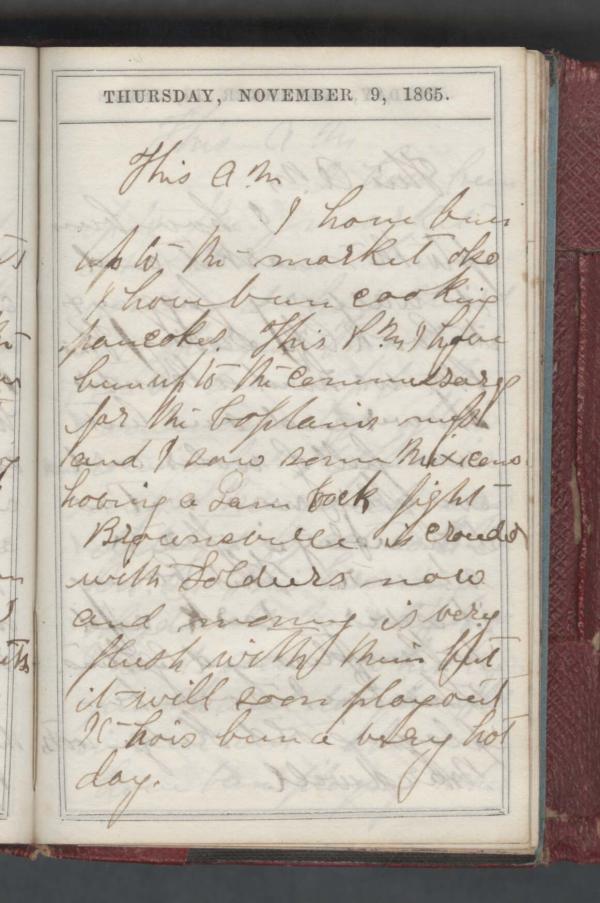 THURSDAY, NOVEMBER 9, 1865.
This A M
I have been
up to the market also
I have been cooking
pancakes. This P.M I have
been up to the commissary
for the Captains
and I saw some Mixicans
having a Game Cock fight
Brownsville is crouded
with Soldiers now
and money is very
flush with them but
it will soon play out
It has been a very hot
day.